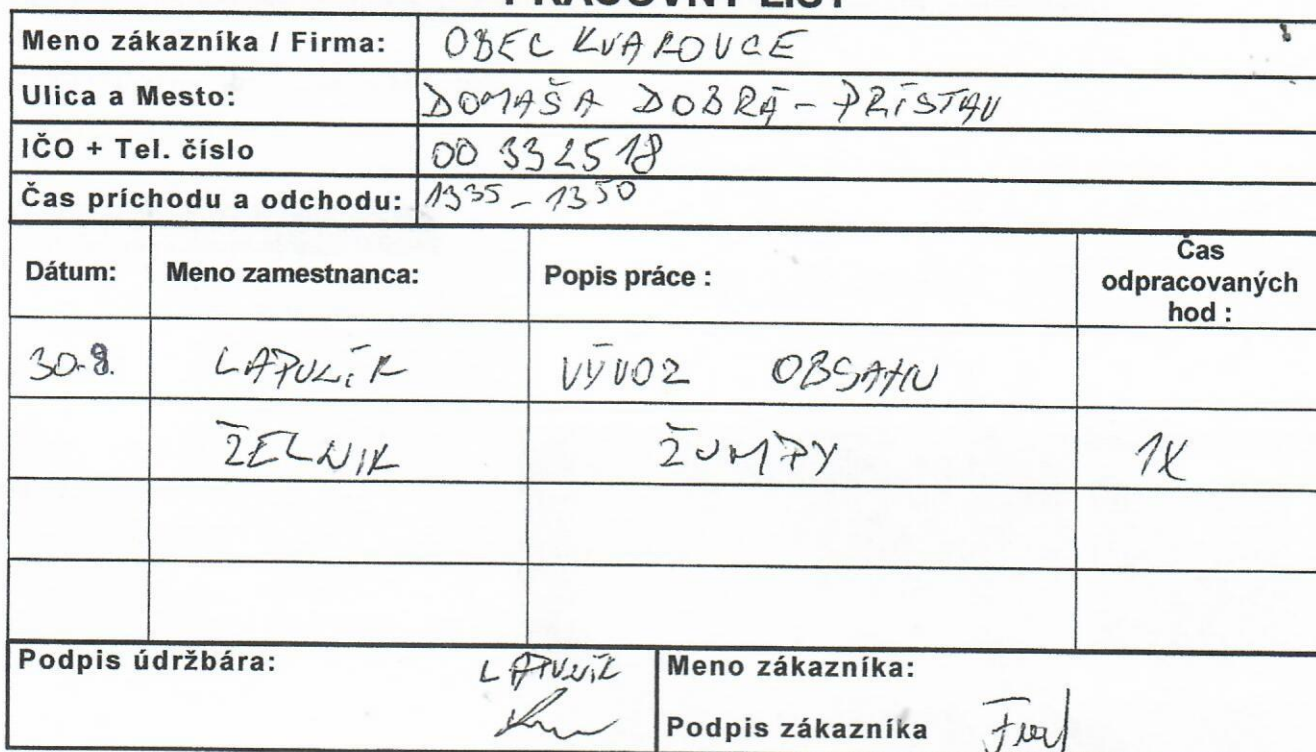 PRACOVNÝ LIST
Meno zákazníka / Firma: OBEC KVAKOVCE
Ulica a Mesto: DOMAŠA DOBRÁ - PRÍSTAV
IČO + Tel. číslo 00 332518
Čas príchodu a odchodu: 13 35 - 13 50
Dátum: Meno zamestnanca: Popis práce : Čas odpracovaných hod :
30.8. VÝVOZ OBSAHU
ŽELNIK ŽUMPY 1X
Podpis údržbára: Meno zákazníka:
Podpis zákazníka